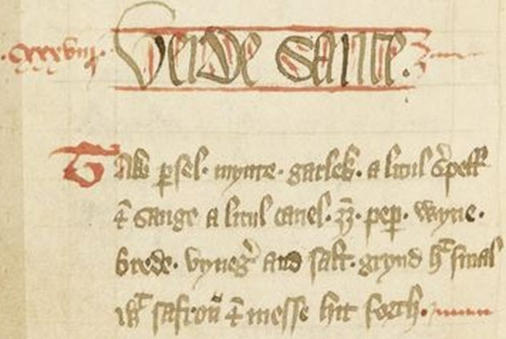 ·xxxviij· Verde Sause.
Tak psel· mynte· garlek· a litul s̉pell
⁊ sauge a litul canel· gȝ· pep̉· wyne·
brede· vyneg̉ and salt· grynd hᵗ smal
wᵗ safroū ⁊ messe hit forth·